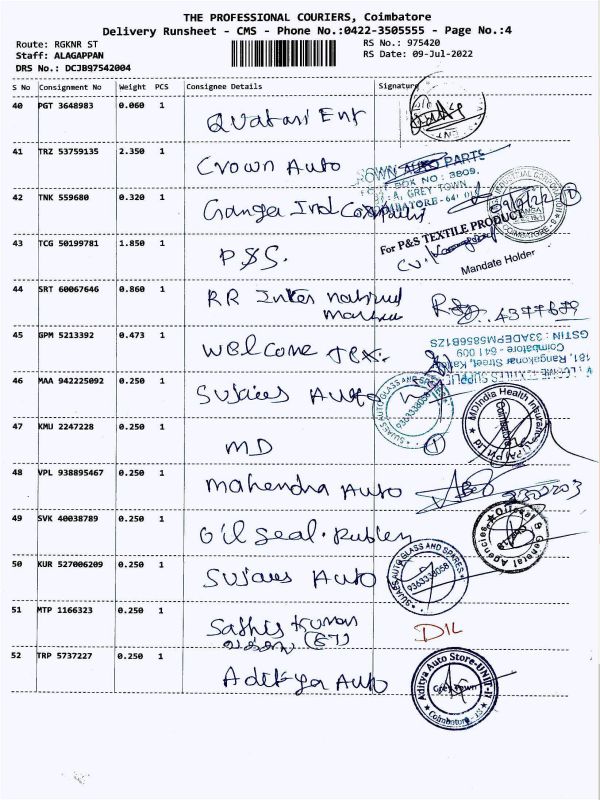 THE PROFESSIONAL COURIERS, Coimbatore
Delivery Runsheet - CMS - Phone No.:0422-3505555 - Page No.:4
Route: RGKNR ST RS No.: 975420
Staff: ALAGAPPAN RS Date: 09-Jul-2022
DRS No.: DCJB97542004
S No Consignment No Weight PCS Consignee Details Signature
40 PGT 3648983 0.060 1
41 TRZ 53759135 2.350 1 Crown Auto
CROWN AUTO PARTS
BOX NO : 3809.
GREY TOWN
COIMBATORE-64
42 TNK 559680 0.320 1 Ganga Ind
INDUSTRIAL CORPORATION
COIMBATORE
43 TCG 50199781 1.850 1 P&S.
For P&S TEXTILE PRODUCT
Mandate Holder
44 SRT 60067646 0.860 1 RR Inter national
45 GPM 5213392 0.473 1 Welcome Tex.
181, Rangakonar Street,
Coimbatore - 641 009
GSTIN : 33ADEPM5856B1ZS
46 MAA 942225092 0.250 1 Sujaies Auto
SUJAES AUTO GLASS AND SPARES
9363338058
47 KMU 2247228 0.250 1 MD
MDIndia Health Insurance
Coimbatore
48 VPL 938895467 0.250 1 Mahendra Auto
49 SVK 40038789 0.250 1 Oil Seal. Rubber
Oilseal & General Agencies
50 KUR 527006209 0.250 1 Sujaies Auto
SUJAES AUTO GLASS AND SPARES
9363338058
51 MTP 1166323 0.250 1 Sathis Kumar
DIL
52 TRP 5737227 0.250 1 Aditya Auto
Aditya Auto Store-UNIT-II
Grey Town
Coimbatore